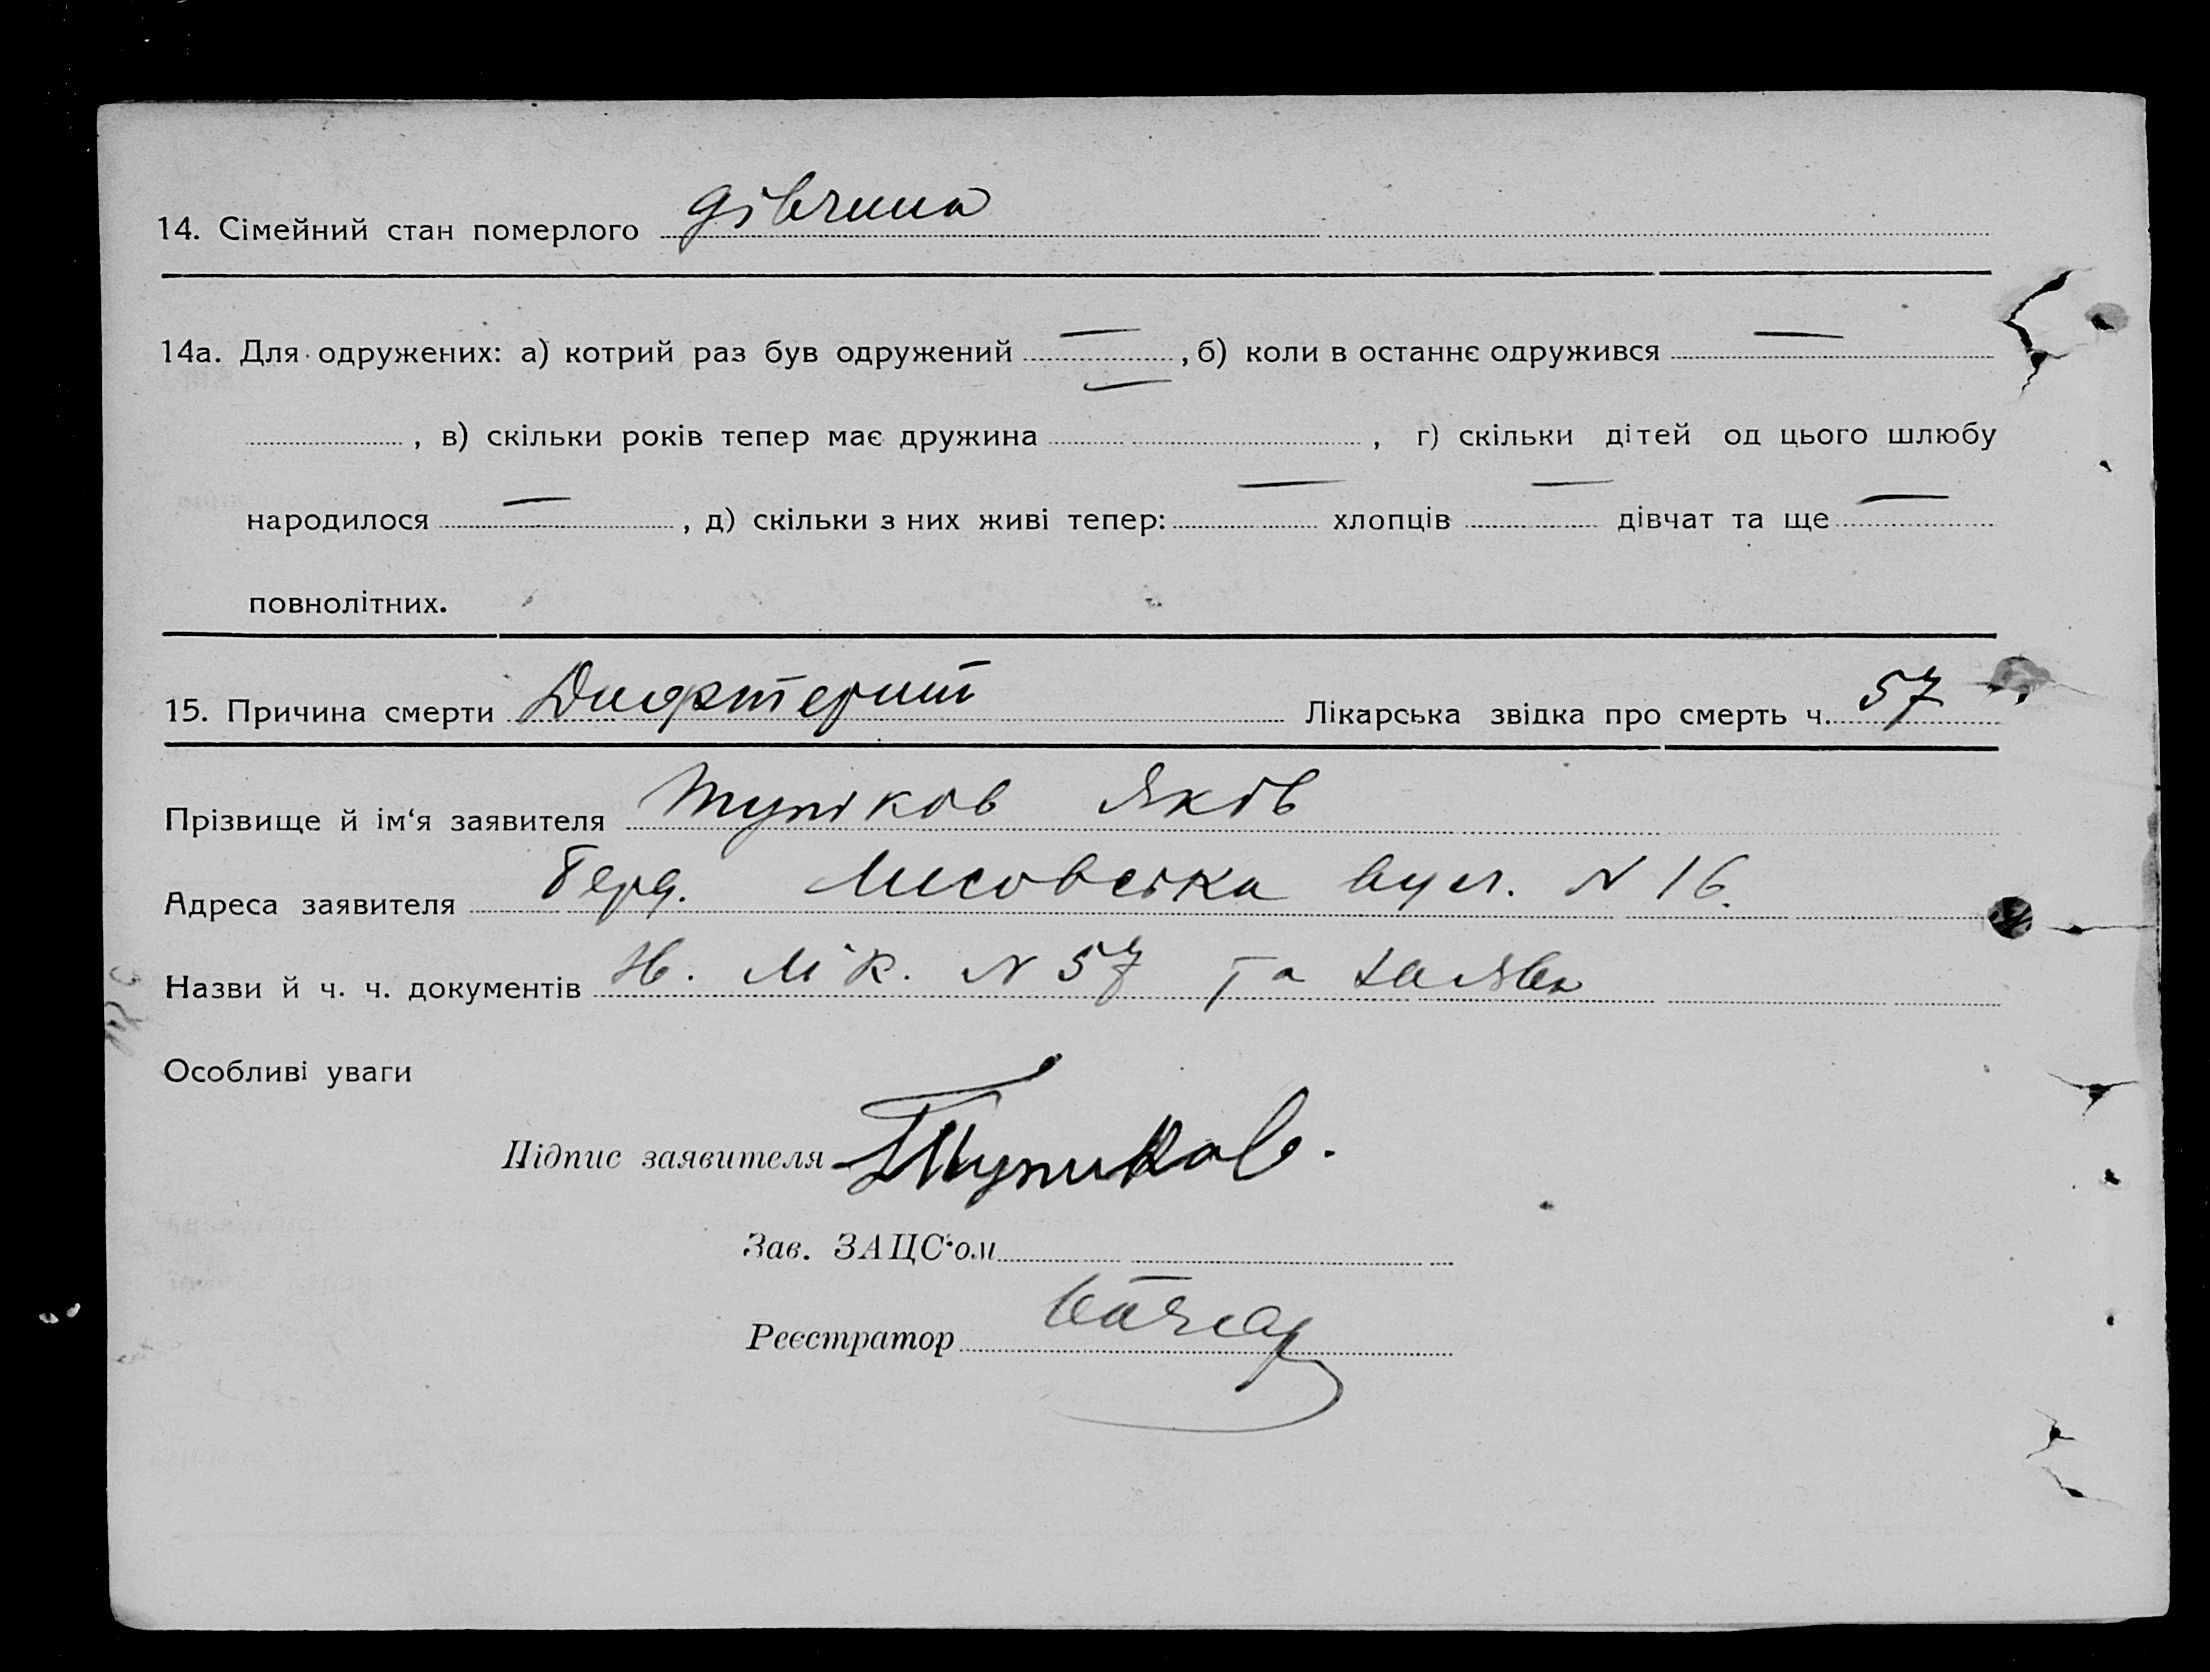 14. Сімейний стан померлого дівчина
14а. Для одружених: а) котрий раз був одружений — , б) коли в останнє одружився —
, в) скільки років тепер має дружина — , г) скільки дітей од цього шлюбу
народилося — , д) скільки з них живі тепер: — хлопців — дівчат та ще —
повнолітних.
15. Причина смерти Дифтерит Лікарська звідка про смерть ч. 57
Прізвище й ім‘я заявителя Тупіков Яків
Адреса заявителя Берд. Лисовська вул. N 16.
Назви й ч. ч. документів Лік. N 57 та заява
Особливі уваги
Підпис заявителя Тупиков.
Зав. ЗАЦС‘ом
Реєстратор